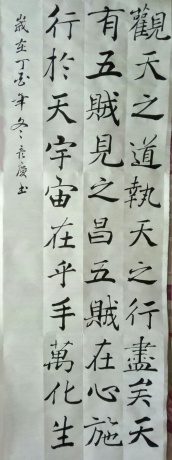 觀天之道執天之行盡矣天
有五賊見之昌五賊在心施
行於天宇宙在乎手萬化生
歲在丁酉年冬 慶書